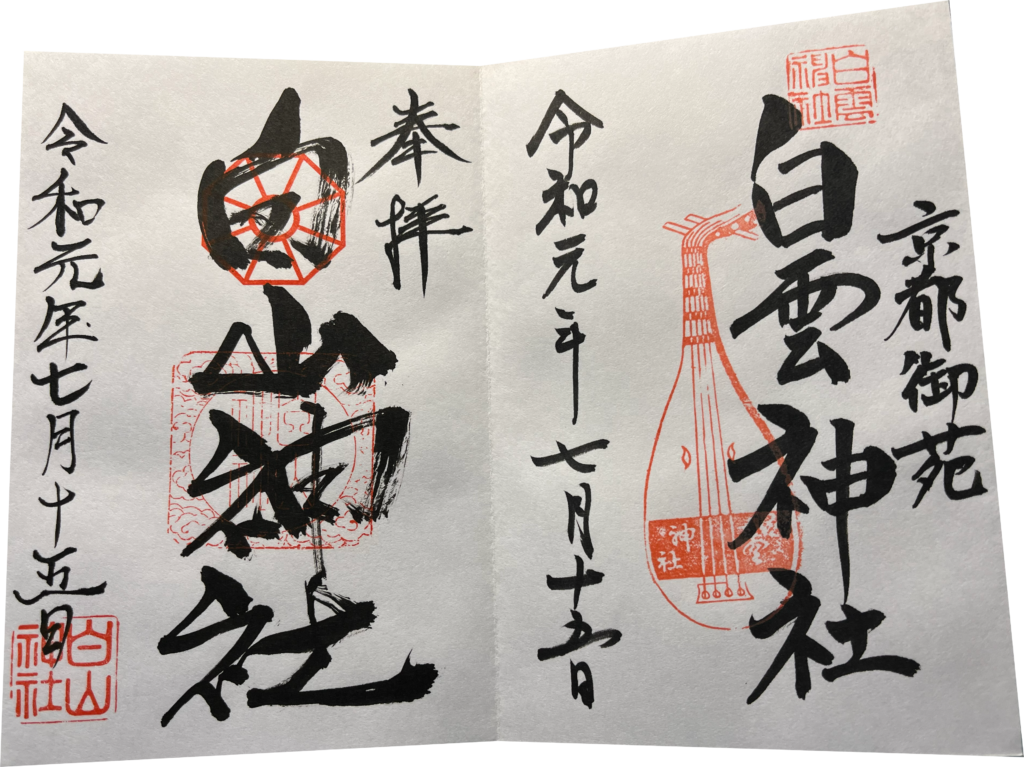 白雲神社
京都御苑
白雲神社
神社
令和元年七月十五日
奉拝
白山神社
令和元年七月十五日
白山神社